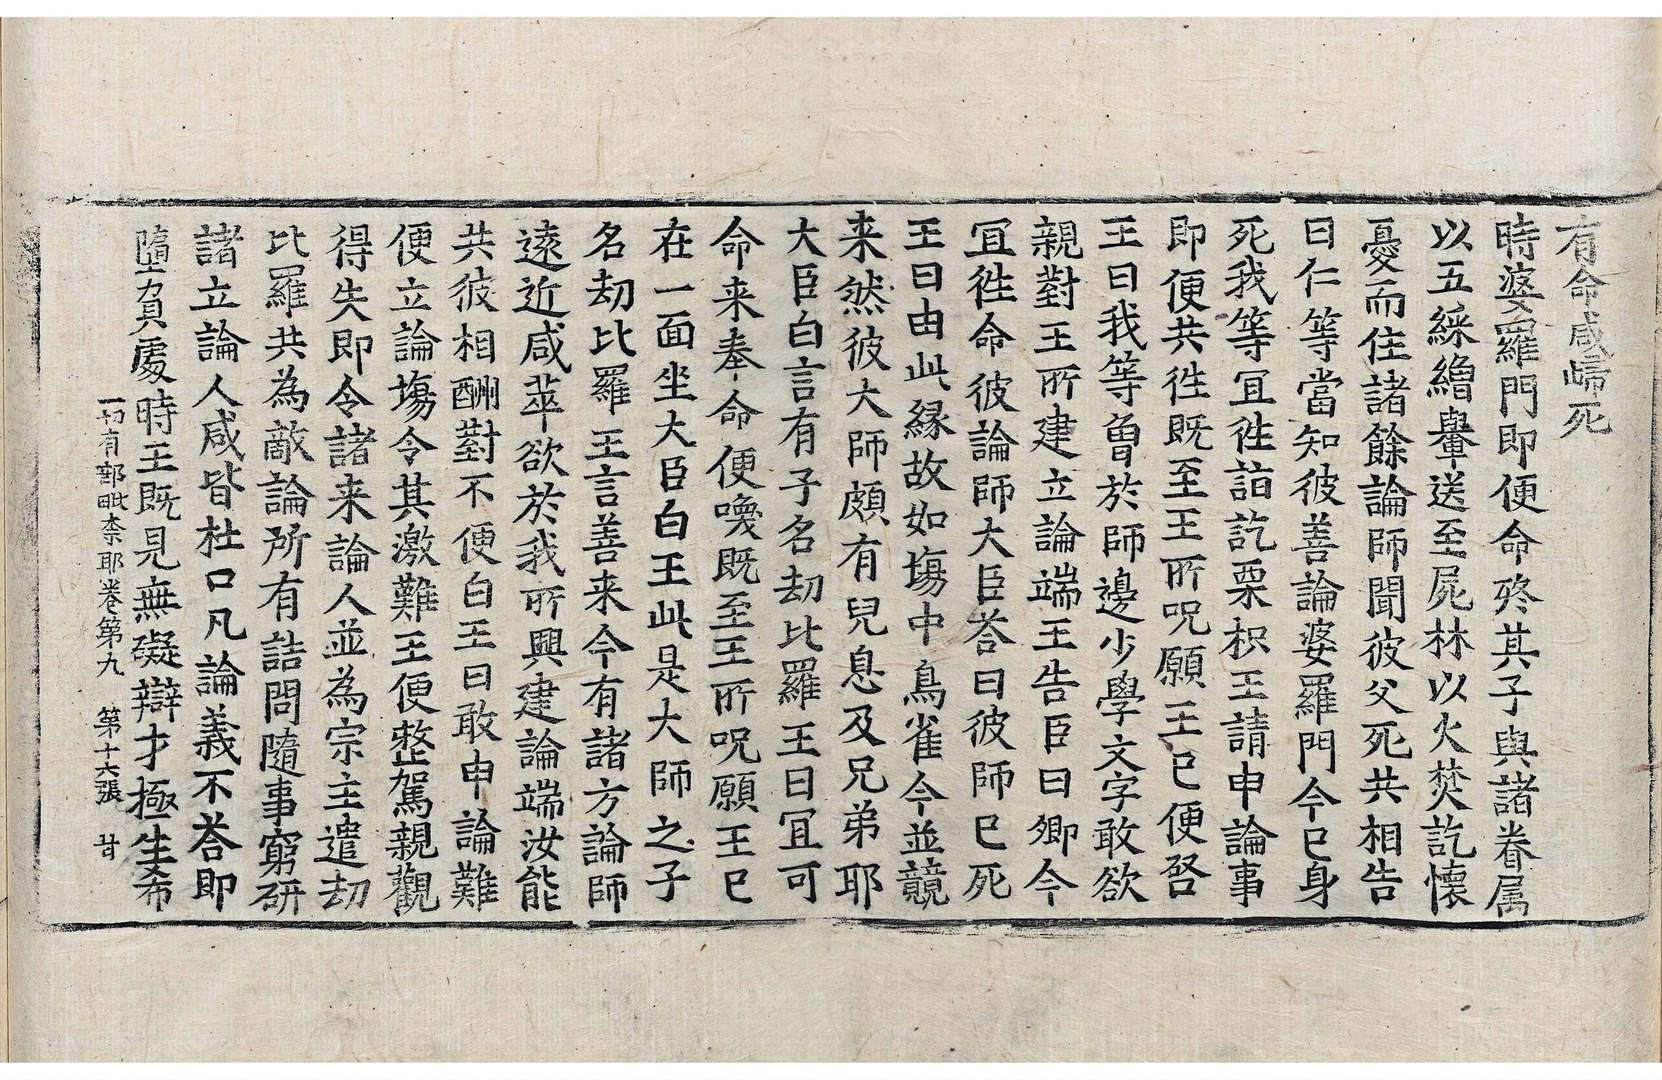 有命咸歸死
時婆羅門即便命終其子與諸眷属
以五綵繒轝送至屍林以火焚訖懷
憂而住諸餘論師聞彼父死共相告
曰仁等當知彼善論婆羅門今已身
死我等冝徃詣訖栗枳王請申論事
即便共徃既至王所呪願王已便啓
王曰我等曾於師邊少學文字敢欲
親對王所建立論端王告臣曰卿今
冝徃命彼論師大臣荅曰彼師已死
王曰由此縁故如塲中鳥雀今並競
来然彼大師頗有兒息及兄弟耶
大臣白言有子名劫比羅王曰冝可
命来奉命便喚既至王所呪願王已
在一面坐大臣白王此是大師之子
名劫比羅王言善来今有諸方論師
遠近咸萃欲於我所興建論端汝能
共彼相酬對不便白王曰敢申論難
便立論塲令其激難王便整駕親觀
得失即令諸来論人並為宗主遣劫
比羅共為敵論所有詰問隨事窮研
諸立論人咸皆杜口凡論義不荅即
墮負處時王既見無礙辯才極生希
一切有部毗奈耶卷第九　第十六張　甘